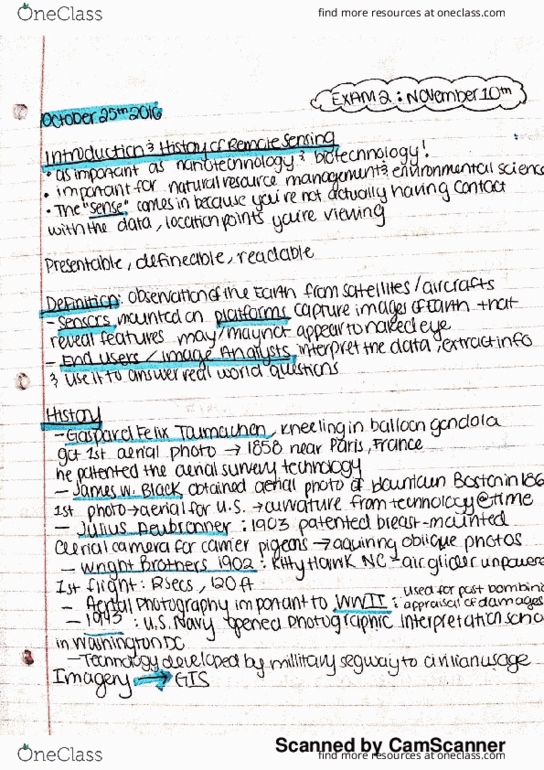 OneClass
find more resources at oneclass.com
October 25th 2016
EXAM 2: November 10th
Introduction & History of Remote Sensing
• as important as nanotechnology & biotechnology!
• important for natural resource management & environmental science
• The "sense" comes in because you're not actually having contact
with the data, location points you're viewing
Presentable, defineable, readable
Definition: observation of the Earth from satellites/aircrafts
- Sensors mounted on platforms capture images of Earth that
reveal features may/may not appear to naked eye
- End Users / Image Analysts interpret the data, extract info
& use it to answer real world questions
History
- Gaspard Felix Tournachen, kneeling in balloon gondola
got 1st aerial photo → 1858 near Paris, France
he patented the aerial survey technology
- James W. Black obtained aerial photo of downtown Boston in 186
1st photo → aerial for U.S. → curvature from technology @ time
- Julius Neubronner: 1903 patented breast-mounted
aerial camera for carrier pigeons → aquiring oblique photos
- Wright Brothers 1902: Kitty Hawk NC - air glider unpowere
1st flight: 12secs, 120ft
- Aerial Photography important to WWII: used for post bombin
appraisal of damages
- 1943: U.S. Navy opened Photographic Interpretation scho
in Washington DC
- Technology developed by military segway to civilian usage
Imagery → GIS
Scanned by CamScanner
OneClass
find more resources at oneclass.com